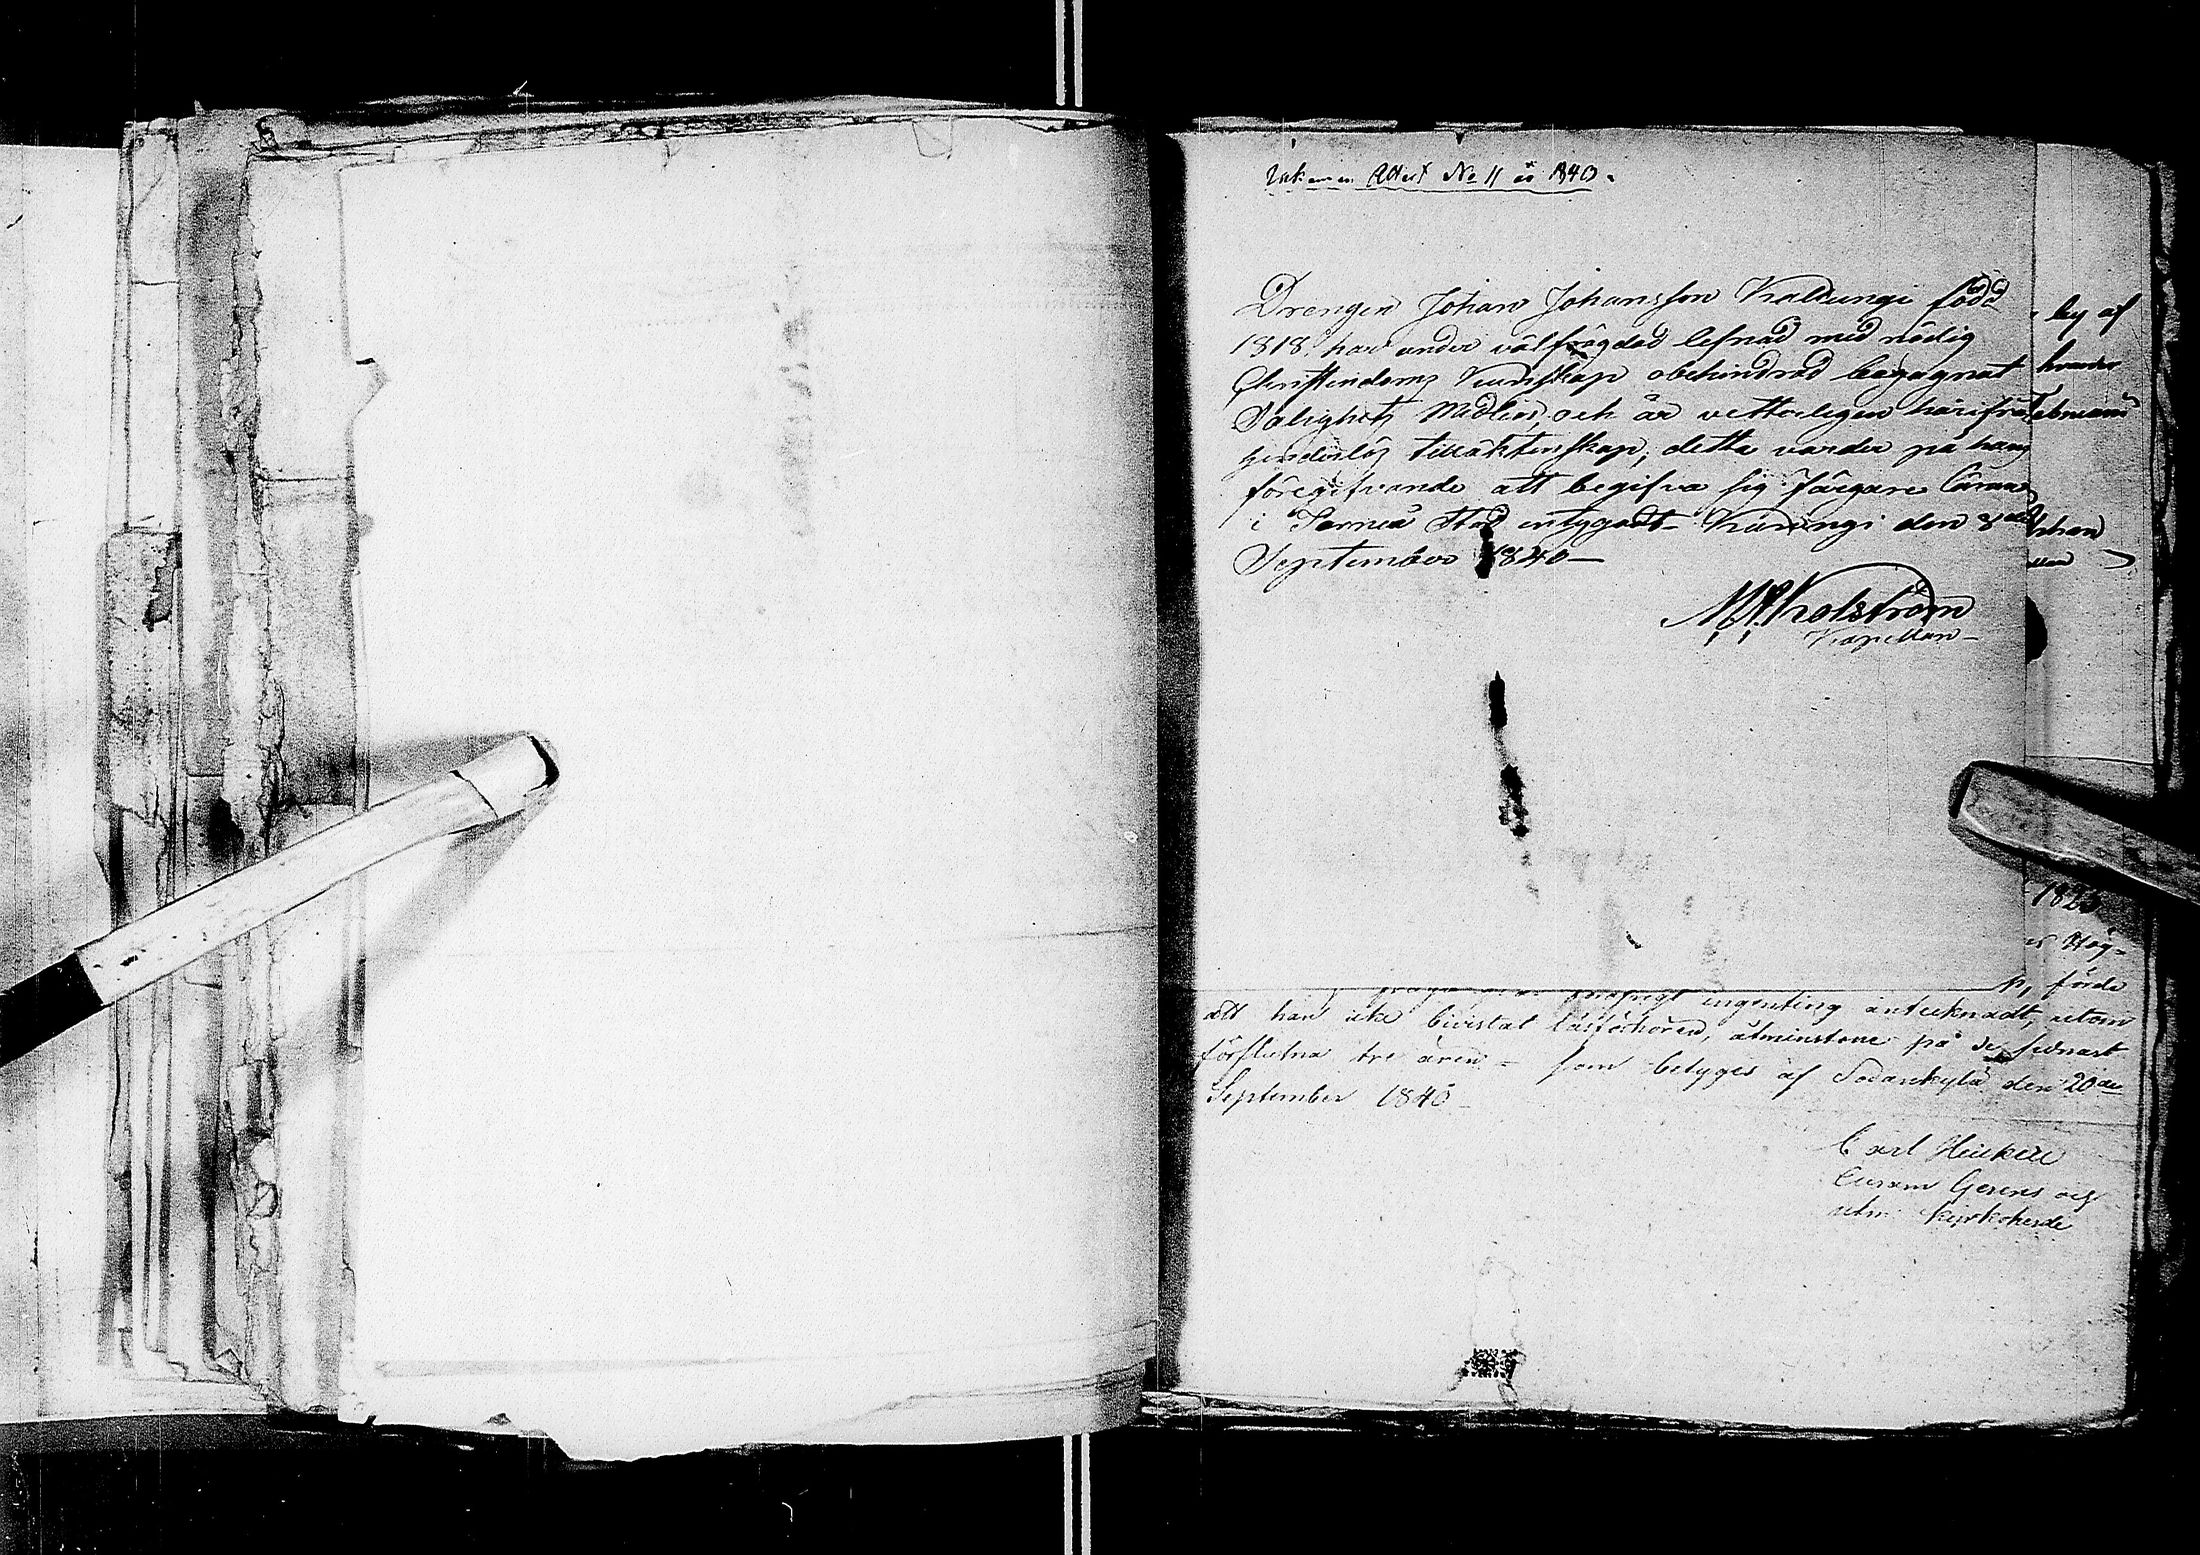 Inkommen Attest No 11 år 1840.
Drengen Johan Johansson Kalkungi född
1818, har under välfrägdad lefnad med nödig
Christendoms Kunskap obehindrad begagnat
Salighets Medlen, och är vetterligen härifrån
hinderlös till äktenskap; detta varder på hans
föregifvande att begifva sig Färgare läran
i Torneå Stad intygadt. Karungi den 8de
September 1840 —
M. Kolström
Kapellan —
by af
1823
p, förde
frägd är för öfrigt ingenting antecknadt, utom
att han icke bivistat läsförhören, åtminstone på de sednast
förflutna tre åren – som betyges af Sodankylä den 20de
September 1840 –
Carl Heickell
Curam Gerens och
utn. Kyrkoherde